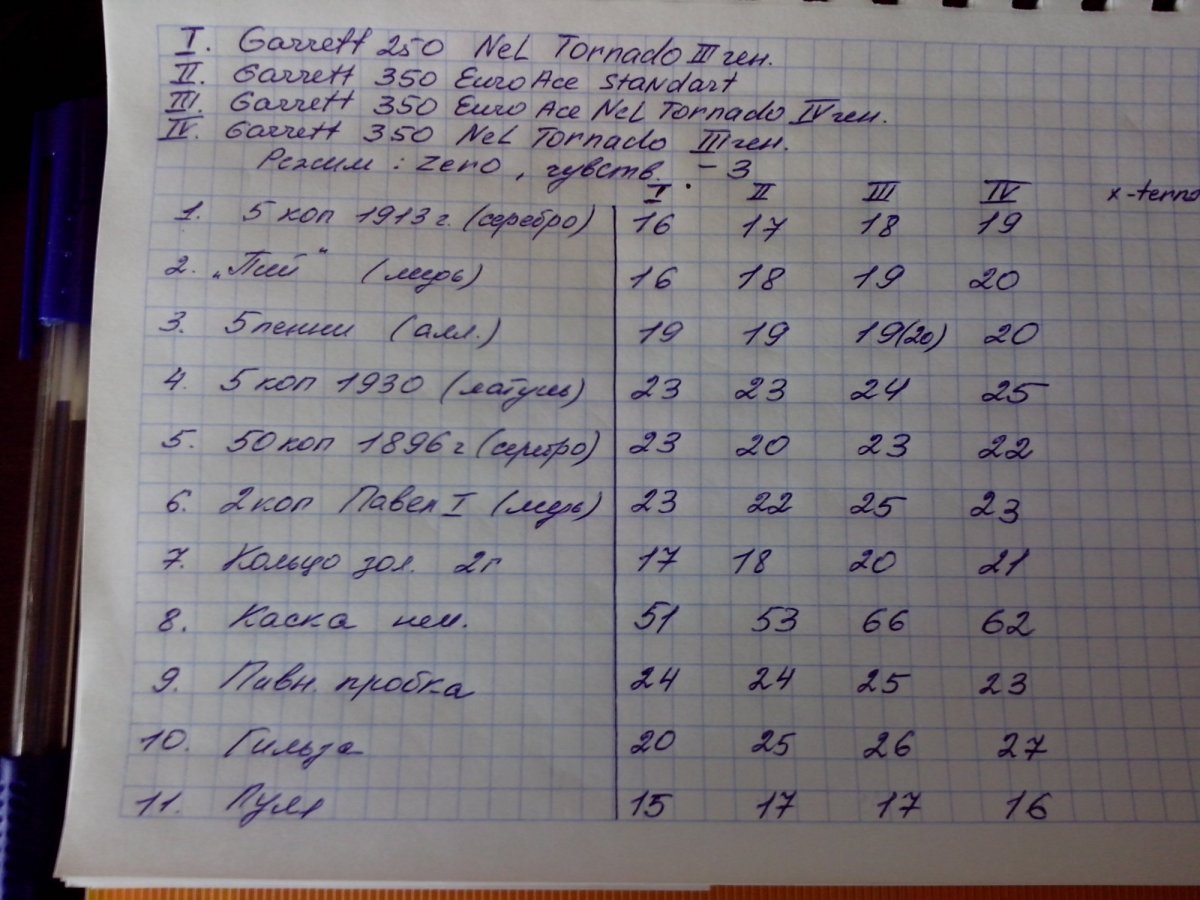 I. Garrett 250 NeL Tornado III ген.
II. Garrett 350 EuroAce Standart
III. Garrett 350 Euro Ace NeL Tornado IV ген.
IV. Garrett 350 NeL Tornado III ген.
Режим : Zero , чувств. - 3
I II III IV x-terra
1. 5 коп 1913 г. (серебро) 16 17 18 19
2. „Пий“ (медь) 16 18 19 20
3. 5 пенни (алл.) 19 19 19(20) 20
4. 5 коп 1930 (латунь) 23 23 24 25
5. 50 коп 1896 г (серебро) 23 20 23 22
6. 2 коп Павел I (медь) 23 22 25 23
7. Кольцо зол. 2г 17 18 20 21
8. Каска нем. 51 53 66 62
9. Пивн. пробка 24 24 25 23
10. Гильза 20 25 26 27
11. Пуля 15 17 17 16